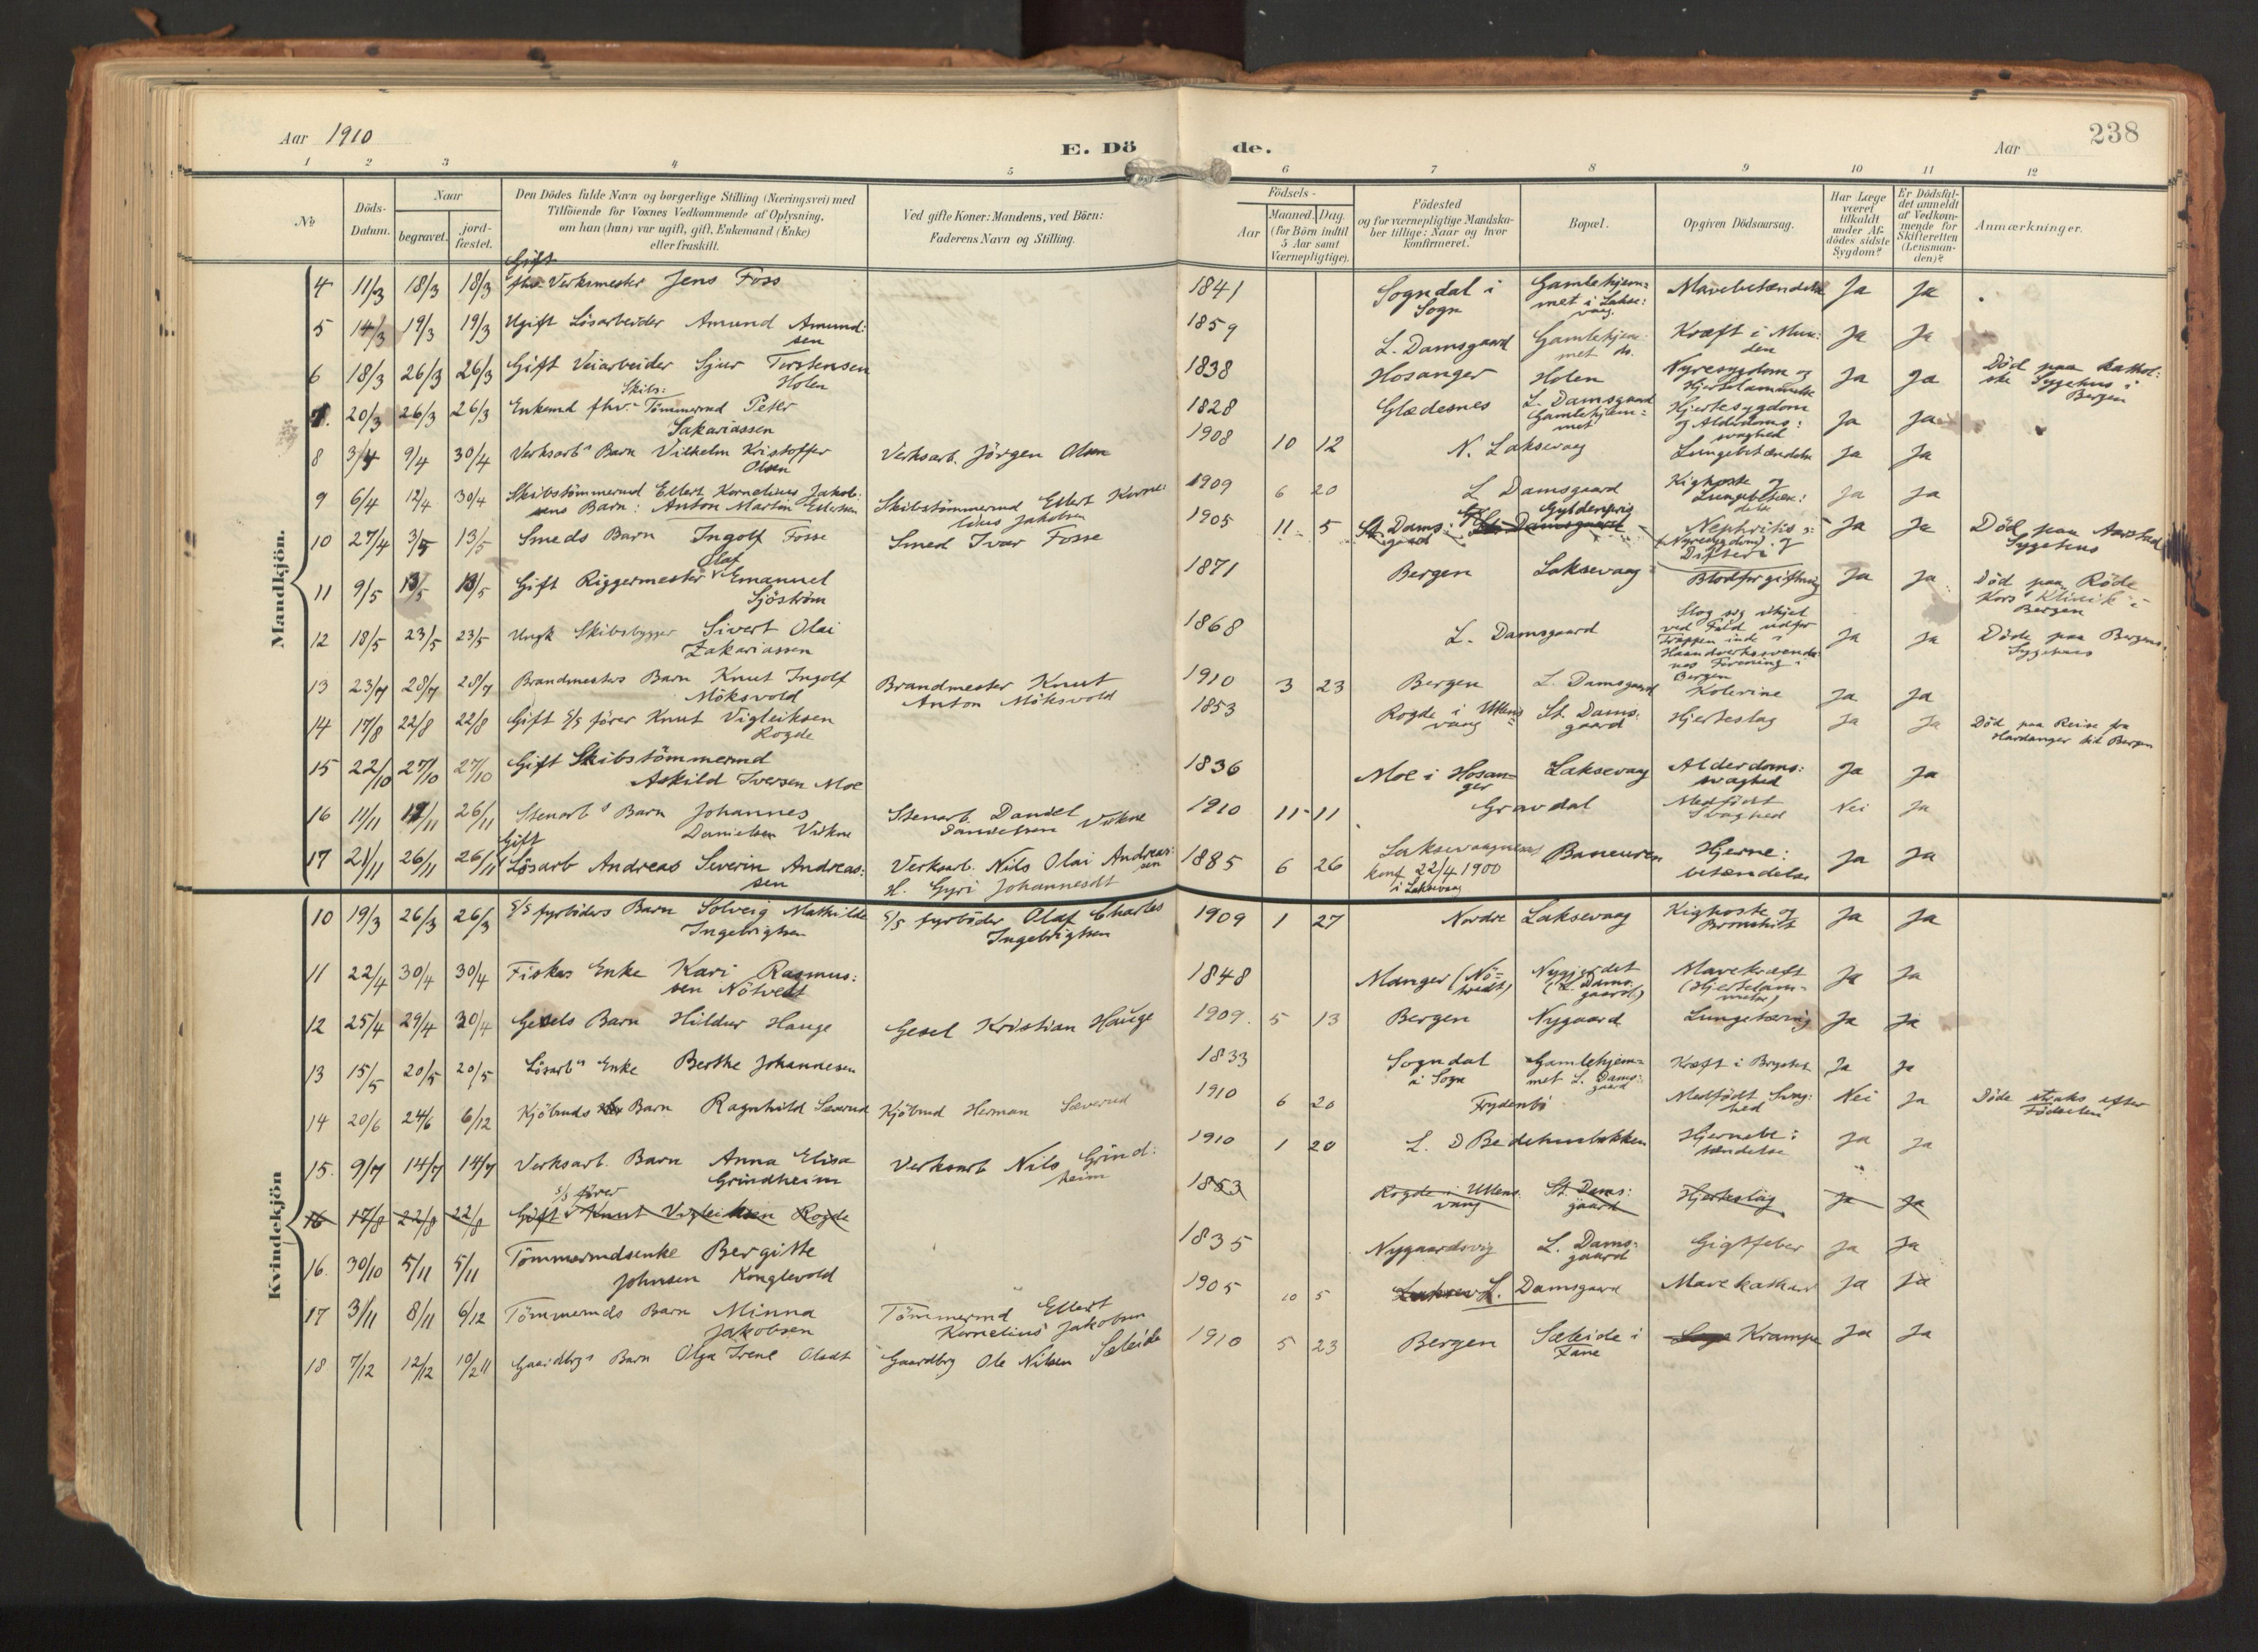 Aar 1910
E. Dö
de.
Aar
238
1 2 3 4 5 6 7 8 9 10 11 12
No
Döds-Datum.
Naar
begravet.
jord-fæstet.
Den Dödes fulde Navn og borgerlige Stilling (Næringsvei) med
Tilföiende for Voxnes Vedkommende af Oplysning,
om han (hun) var ugift, gift, Enkemand (Enke)
eller fraskilt.
Ved gifte Koner: Mandens, ved Börn:
Faderens Navn og Stilling.
Födsels-
Aar
Maaned. Dag.
(for Börn indtil
5 Aar samt
Værnepligtige).
Födested
og for værnepligtige Mandska-
ber tillige: Naar og hvor
konfirmeret.
Bopæl.
Opgiven Dödsaarsag.
Har Læge
været
tilkaldt
under Af-
dödes sidste
Sygdom?
Er Dödsfal-
det anmeldt
af Vedkom-
mende for
Skifteretten
(Lensman-
den)?
Anmærkninger.
Mandkjön.
Gift
4 11/3 18/3 18/3 fhv. Verksmester Jens Foss 1841 Sogndal i Gamlehjem= Mavebetændelse Ja Ja
Sogn met i Lakse:
vaag.
5 14/3 19/3 19/3 Ugift Lösarbeider Amund Amund: 1859 L. Damsgaard Gamlehjem: Kræft i Mun: Ja Ja
sen met do. den
6 18/3 26/3 26/3 Gift Veiarbeider Sjur Torstensen 1838 Hosanger Holen Nyresygdom og Ja Ja Död paa kathol:
Holen Hjertelammelse ske Sygehus i
Bergen
Skibs:
7. 20/3 26/3 26/3 Enkemd fhv. Tömmermd Peter 1828 Glædesnes L. Damsgaard Hjertesygdom Ja Ja
Sakariassen Gamlehjem= og Alderdoms:
met svaghed
8 3/4 9/4 30/4 Verksarbs Barn Vilhelm Kristoffer Verksarb. Jörgen Olsen 1908 10 12 N. Laksevaag Lungebetændelse Ja Ja
Olsen
9 6/4 12/4 30/4 Skibstömmermd Ellert Kornelius Jakob: Skibstömmermd Ellert Korne: 1909 6 20 L. Damsgaard Kighoste og Ja Ja
sens Barn: Anton Martin Ellertsen lius Jakobsen Lungebetæn:
delse
Gyldenpris
10 27/4 3/5 13/5 Smeds Barn Ingolf Fosse Smed Ivar Fosse 1905 11 5 St. Dams: St. Damsgaard Nephritis Ja Ja Död paa Aarstad
gaard (Nyresygdom) og Sygehus
Difteri
Olaf
11 9/5 13/5 13/5 Gift Riggermester Emanuel 1871 Bergen Laksevaag Blodforgiftning Ja Ja Död paa Röde
Sjöström Kors' Klinik i
Bergen
12 18/5 23/5 23/5 Ungk. Skibsbygger Sivert Olai 1868 L. Damsgaard Slog sig ihjel Ja Ja Döde paa Bergens
Zakariassen ved Fald udfor Sygehus
Trappen inde i
Haandverkssvende:
nes Forening i
Bergen
13 23/7 28/7 28/7 Brandmesters Barn Knut Ingolf Brandmester Knut 1910 3 23 Bergen L. Damsgaard Kolerine Ja Ja
Möksvold Anton Möksvold
14 17/8 22/8 22/8 Gift S/S förer Knut Vigleiksen 1853 Rogde i Ullens St. Dams: Hjerteslag Ja Ja Död paa Reise fra
Rogde vang gaard Hardanger til Bergen
15 22/10 27/10 27/10 Gift Skibstömmermd 1836 Moe i Hosan= Laksevaag Alderdoms: Ja Ja
Askild Iversen Moe ger svaghed
16 11/11 17/11 26/11 Stenarbs Barn Johannes Stenarb. Daniel 1910 11 11 Gravdal Medfödt Nei Ja
Danielsen Vikne Danielsen Vikne Svaghed
Gift
17 21/11 26/11 26/11 Lösarb Andreas Severin Andreas: Verksarb. Nils Olai Andreas: 1885 6 26 Laksevaagneset Baneuren Hjerne: Ja Ja
sen sen
H. Gyri Johannesdt konf. 22/4 1900 betændelse
i Laksevaag
Kvindekjön
10 19/3 26/3 26/3 S/S fyrböders Barn Solveig Mathilde S/S fyrböder Olaf Charles 1909 1 27 Nordre Laksevaag Kighoste og Ja Ja
Ingebrigtsen Ingebrigtsen Bronchit
11 22/4 30/4 30/4 Fiskers Enke Kari Rasmus: 1848 Manger (Nö= Nygjerdet Mavekræft Ja Ja
sen Nötvedt tvedt) (L. Dams: (Hjertelam=
gaard) melse)
12 25/4 29/4 30/4 Gesels Barn Hildur Hauge Gesel Kristian Hauge 1909. 5 13 Bergen Nygaard Lungetæring Ja Ja
13 15/5 20/5 20/5 Lösarbs Enke Berthe Johannesen 1833 Sogndal Gamlehjem= Kræft i Brystet Ja Ja
i Sogn met L. Dams:
gaard
14 20/6 24/6 6/12 Kjöbmds Barn Ragnhild Sæverud Kjöbmd Herman Sæverud 1910 6 20 Frydenbö Medfödt Svag: Nei Ja Döde straks efter
hed Födselen
15. 9/7 14/7 14/7 Verksarb. Barn Anna Elisa Verksarb Nils Grind: 1910 1 20 L. D Bedehusbakken Hjernebe: Ja Ja
Grindheim heim tændelse
s/s förer
16 17/8 22/8 22/8 Gift Knut Vigleiksen Rogde 1853 Rogde i Ullens: St. Dams: Hjerteslag Ja Ja
vang gaard
16. 30/10 5/11 5/11 Tömmermdsenke Bergitte 1835 Nygaardsvig L. Dams: Gigtfeber Ja Ja
Johnsen Konglevold gaard
17 3/11 8/11 6/12 Tömmermds Barn Minna Tömmermd Ellert 1905 10 5 L. Damsgaard Mavekatharr Ja Ja
Jakobsen Kornelius Jakobsen
18 7/12 12/12 10/2 11 Gaardbrgs Barn Olga Irene Olsdt Gaardbrg Ole Nilsen Sæleide 1910 5 23 Bergen Sæleide i Krampe Ja Ja
Fane